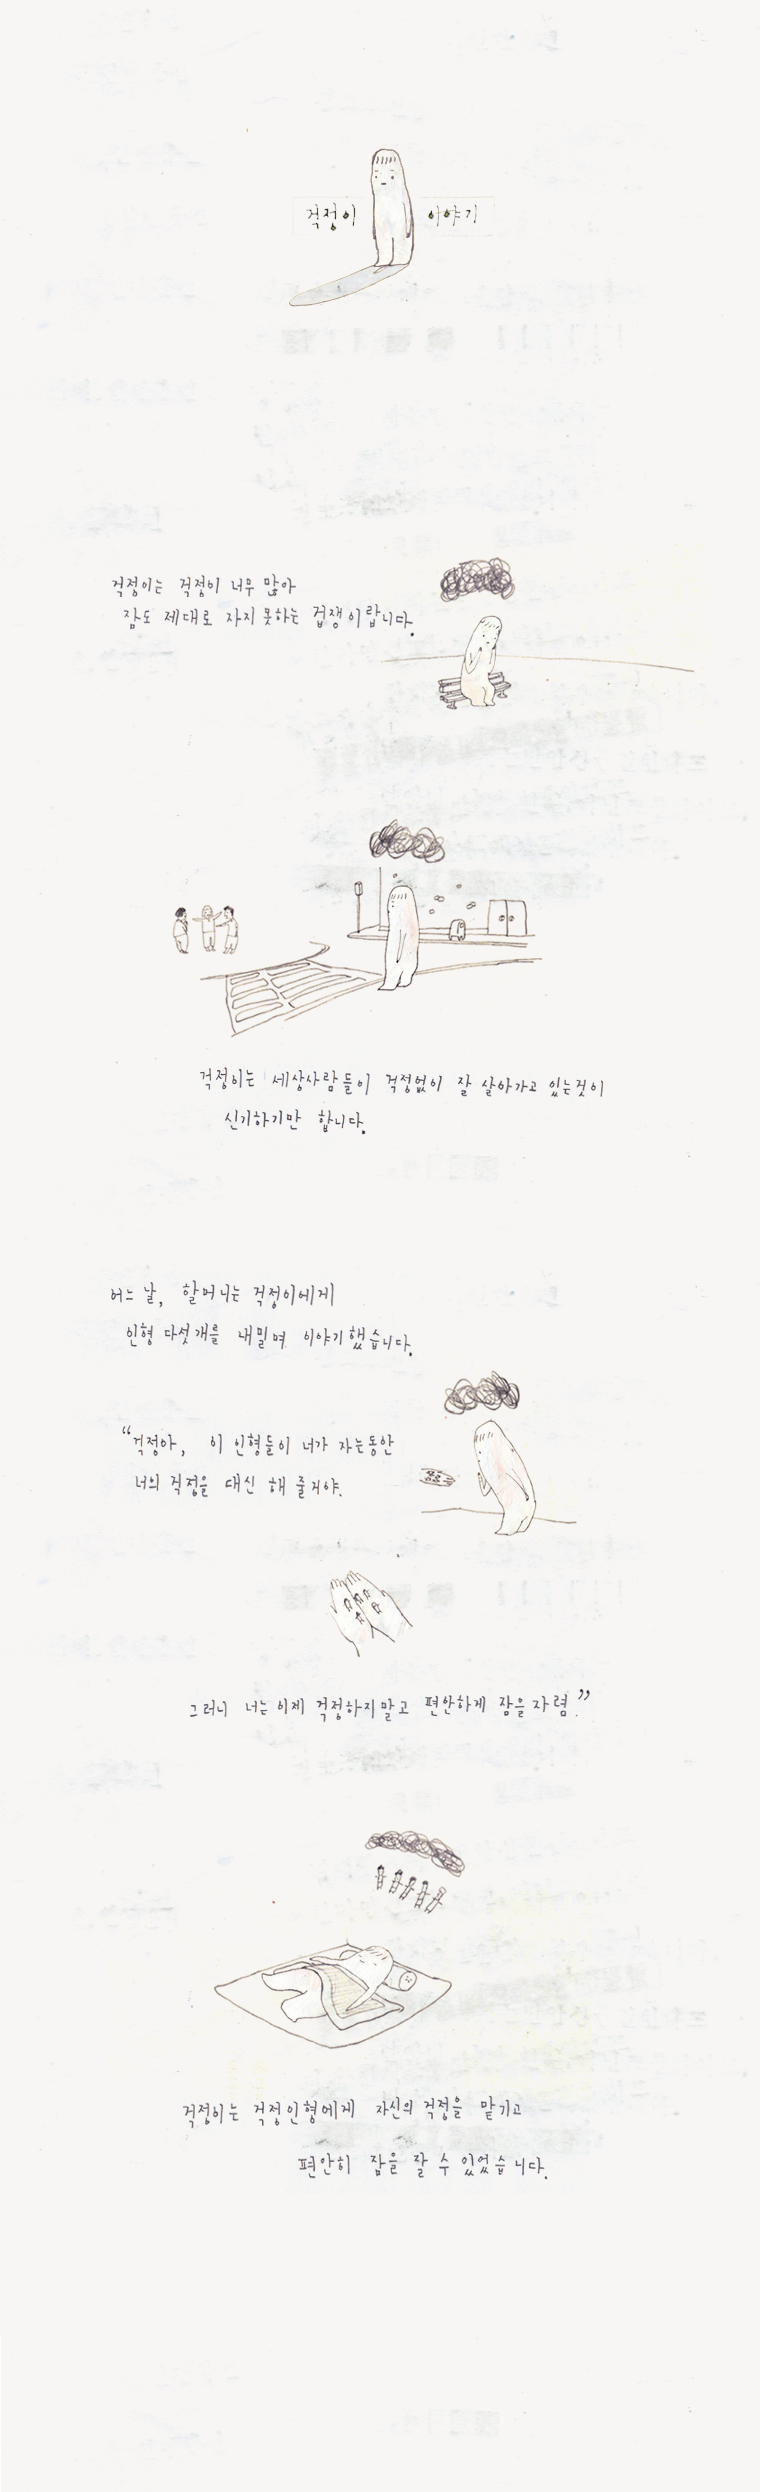 걱정이 이야기
걱정이는 걱정이 너무 많아
잠도 제대로 자지 못하는 겁쟁이랍니다.
걱정이는 세상사람들이 걱정없이 잘 살아가고 있는것이
신기하기만 합니다.
어느 날, 할머니는 걱정이에게
인형 다섯개를 내밀며 이야기했습니다.
“걱정아, 이 인형들이 너가 자는동안
너의 걱정을 대신 해 줄거야.
그러니 너는 이제 걱정하지말고 편안하게 잠을 자렴.”
걱정이는 걱정인형에게 자신의 걱정을 맡기고
편안히 잠을 잘 수 있었습니다.